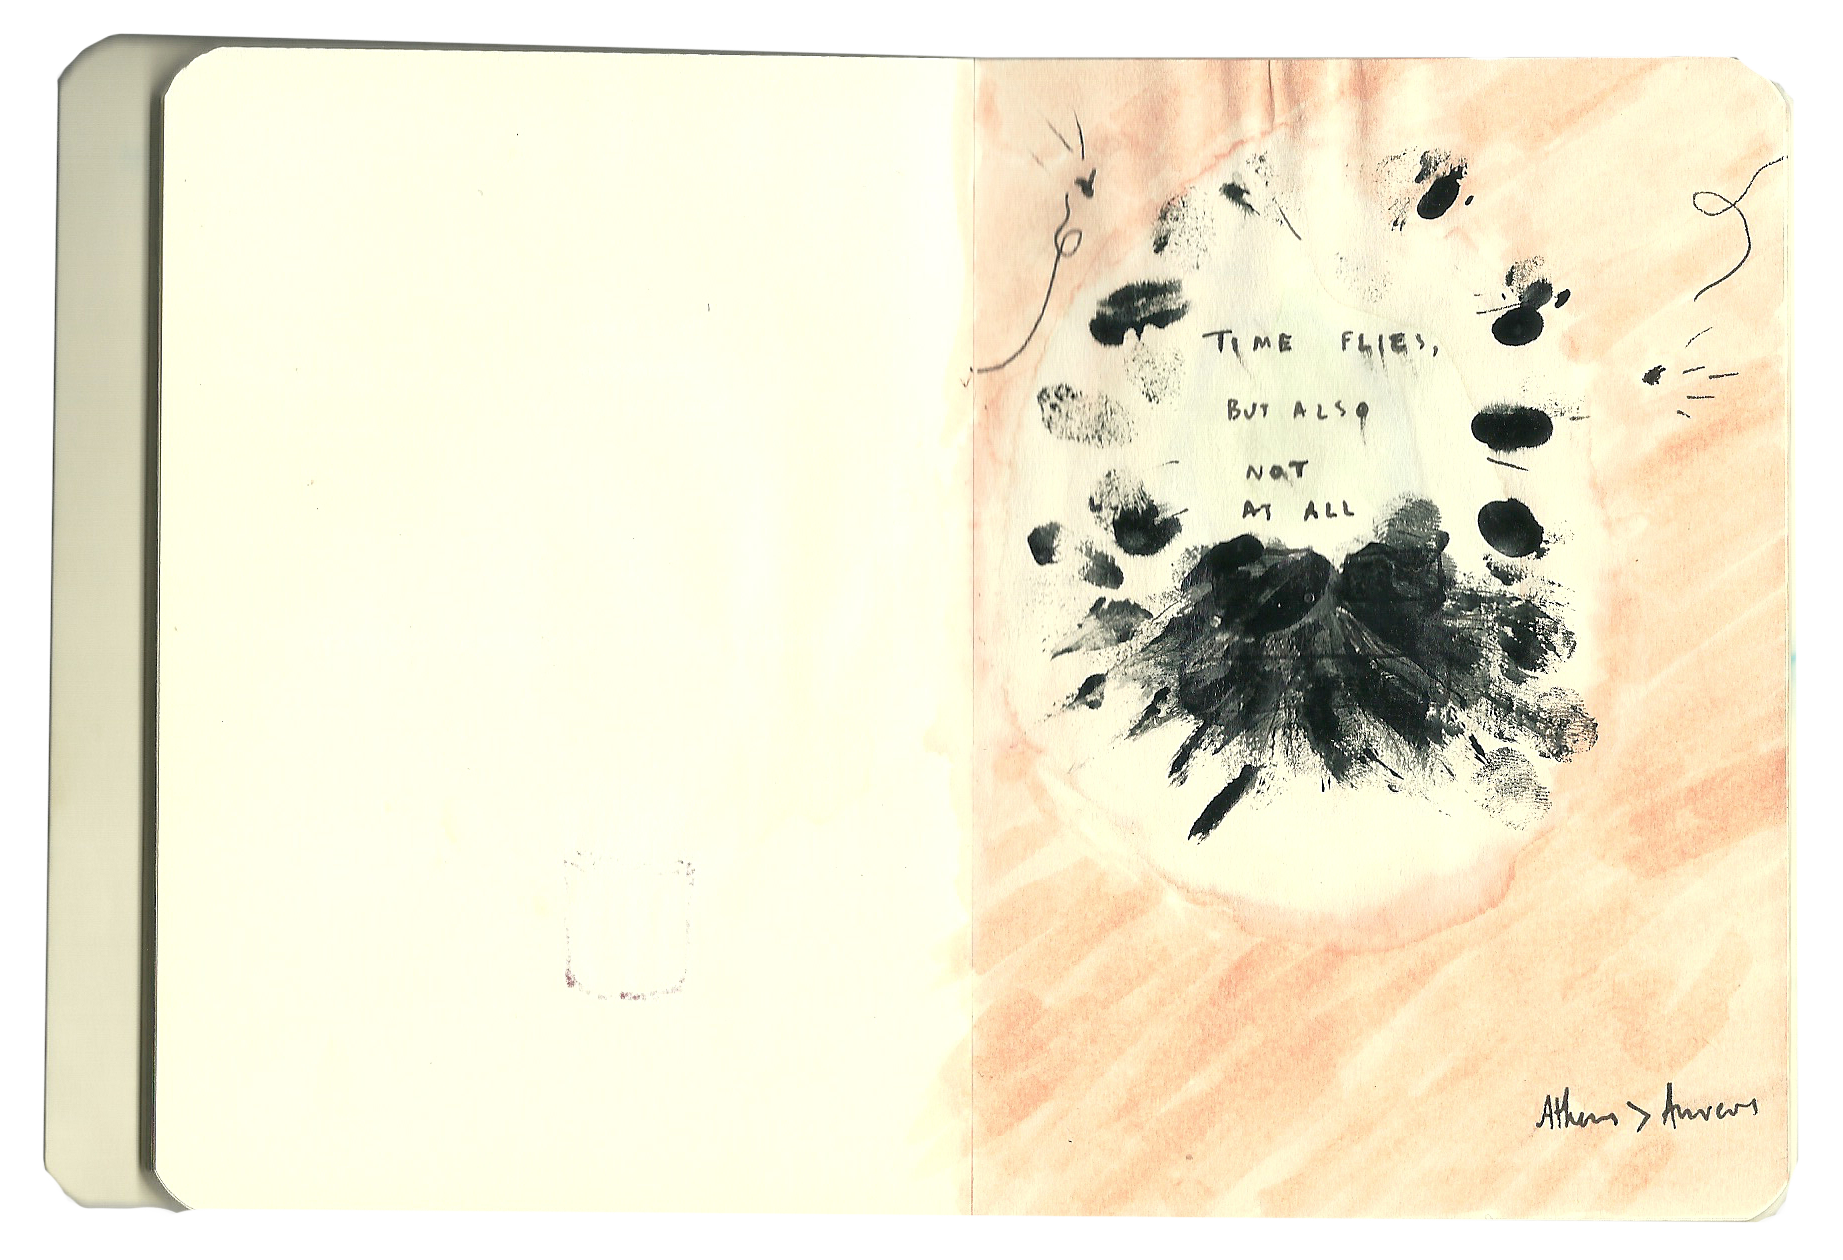 TIME FLIES,
BUT ALSO
NOT
AT ALL
Athens > Anvers